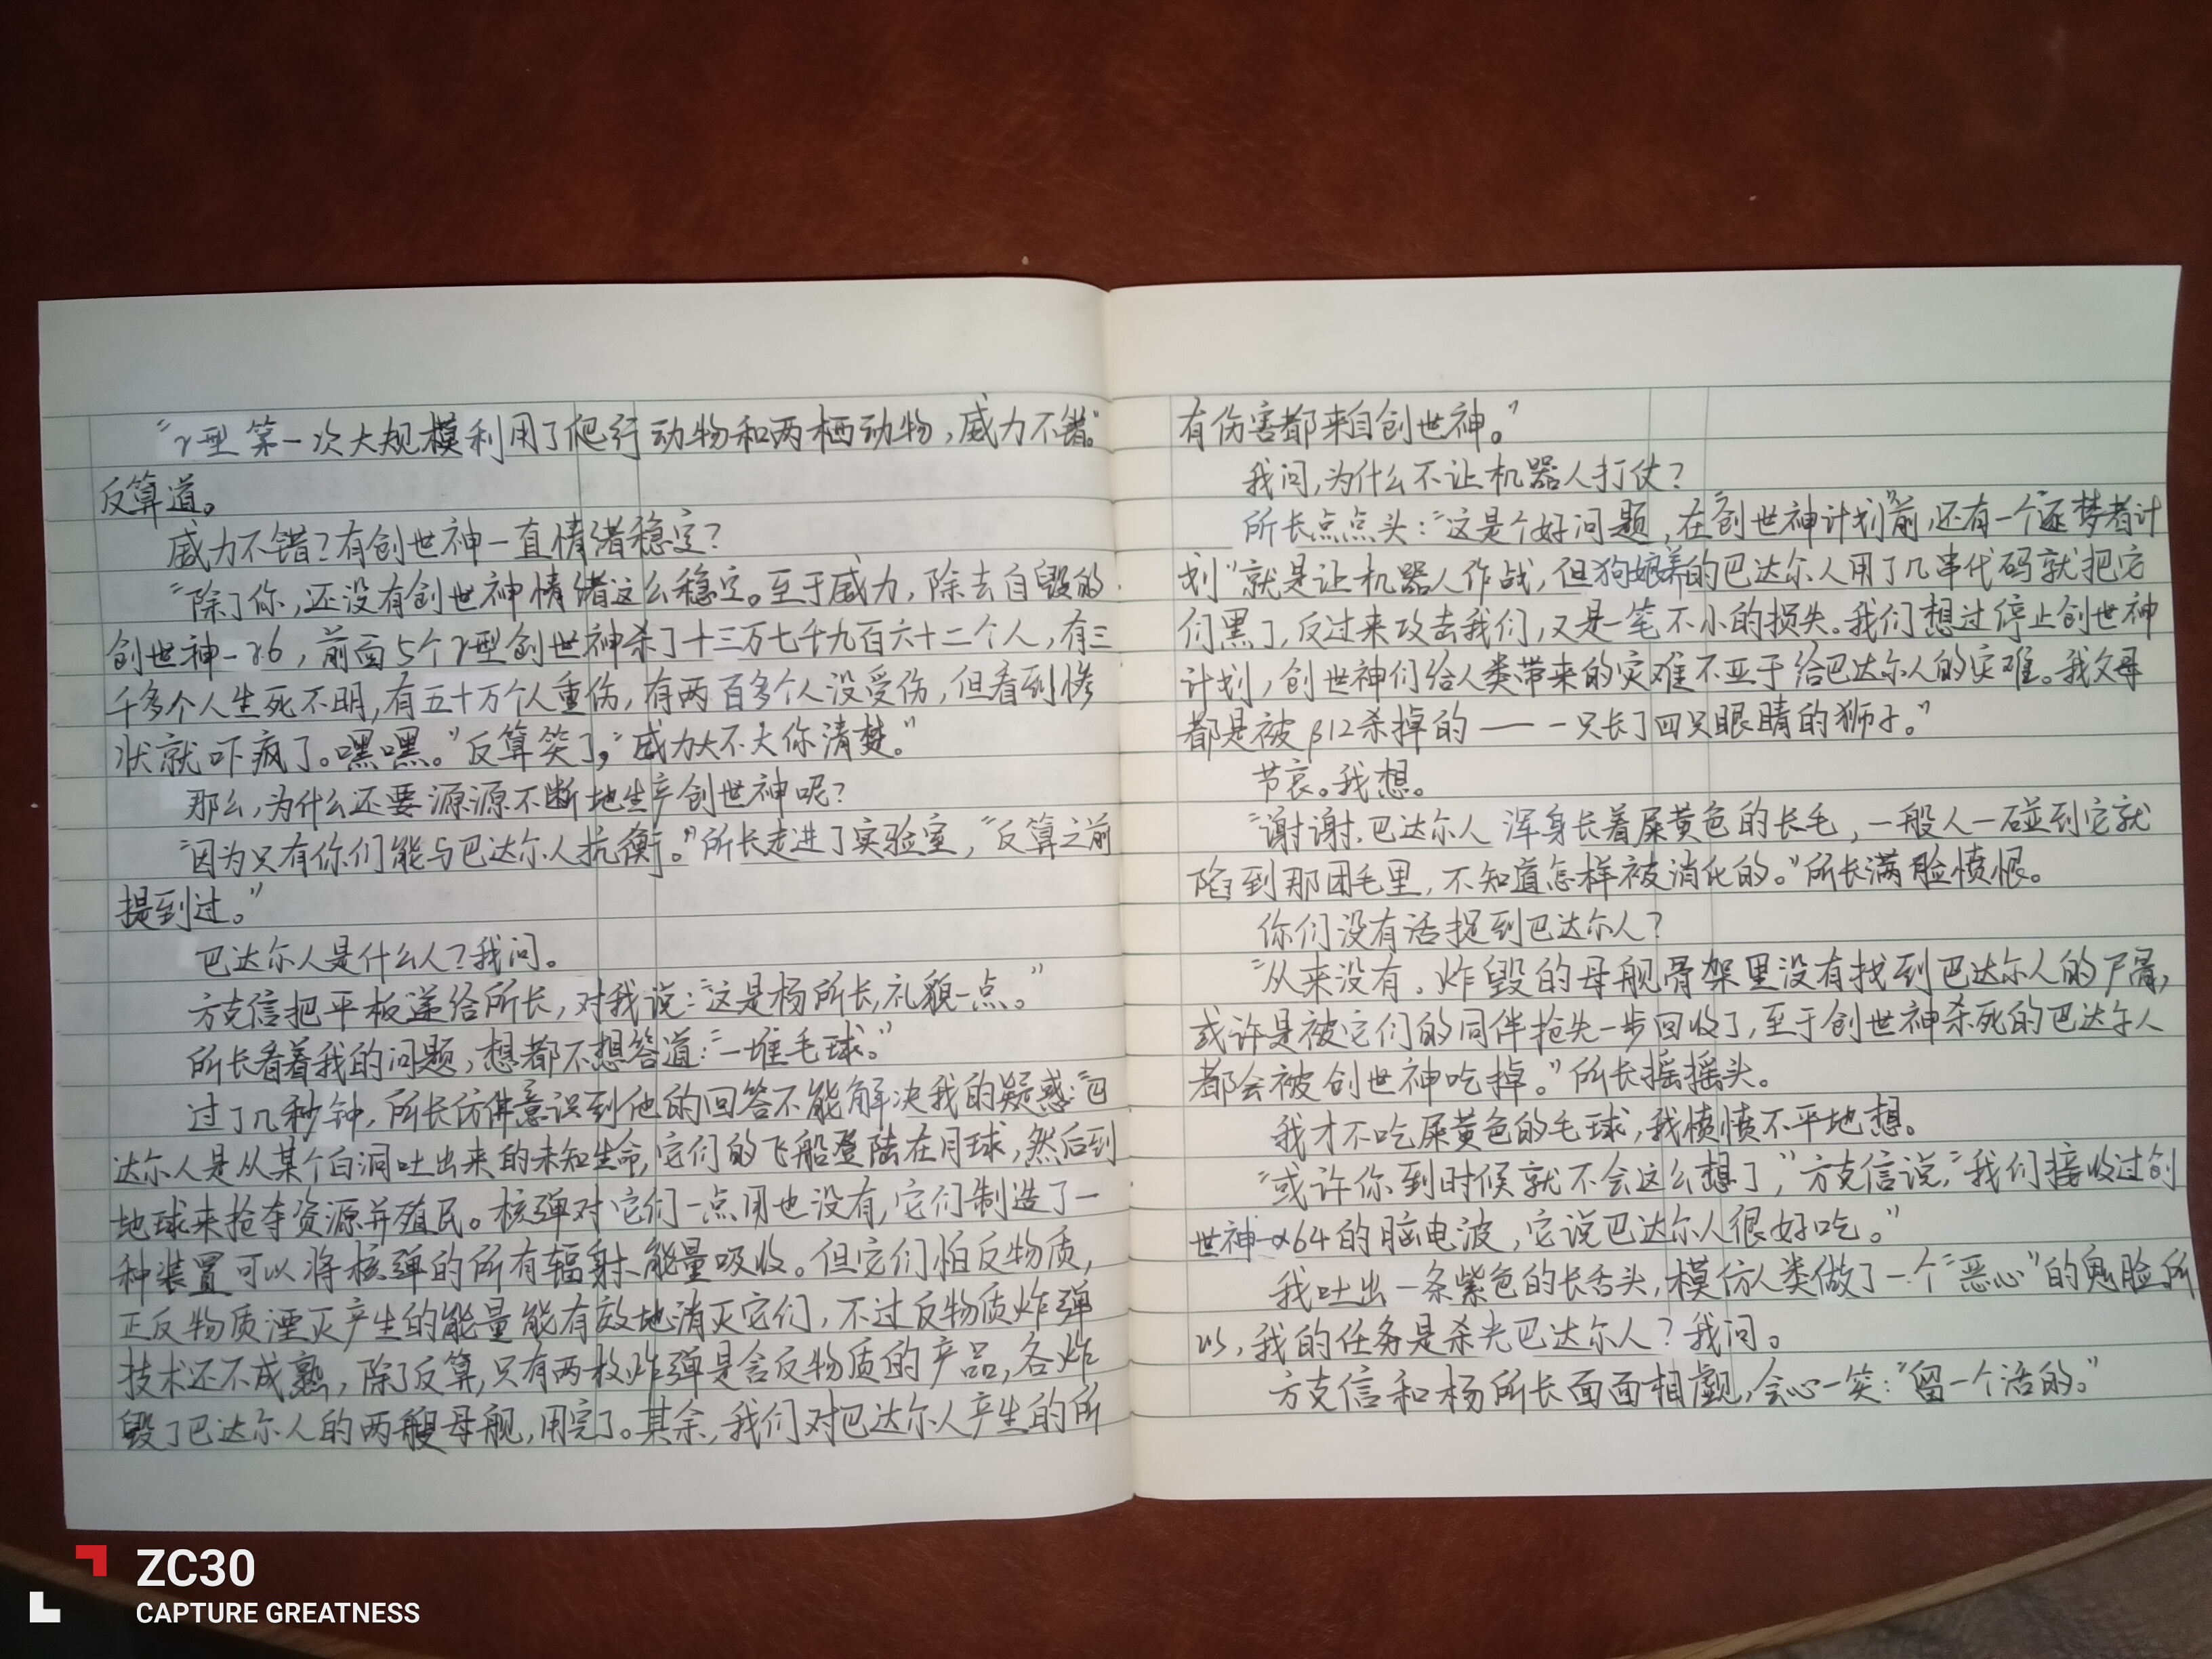 “γ型第一次大规模利用了爬行动物和两栖动物，威力不错。”
反算道。
威力不错？有创世神一直情绪稳定？
“除了你，还没有创世神情绪这么稳定。至于威力，除去自毁的
创世神－γ6，前面5个γ型创世神杀了十三万七千九百六十二个人，有三
千多个人生死不明，有五十万个人重伤，有两百多个人没受伤，但看到惨
状就吓疯了。嘿嘿。”反算笑了，“威力大不大你清楚。”
那么，为什么还要源源不断地生产创世神呢？
“因为只有你们能与巴达尔人抗衡。”所长走进了实验室，“反算之前
提到过。”
巴达尔人是什么人？我问。
方克信把平板递给所长，对我说：“这是杨所长，礼貌一点。”
所长看着我的问题，想都不想答道：“一堆毛球。”
过了几秒钟，所长仿佛意识到他的回答不能解决我的疑惑：“巴
达尔人是从某个白洞吐出来的未知生命，它们的飞船登陆在月球，然后到
地球来抢夺资源并殖民。核弹对它们一点用也没有，它们制造了一
种装置可以将核弹的所有辐射、能量吸收。但它们怕反物质，
正反物质湮灭产生的能量能有效地消灭它们，不过反物质炸弹
技术还不成熟，除了反算，只有两枚炸弹是含反物质的产品，各炸
毁了巴达尔人的两艘母舰，用完了。其余，我们对巴达尔人产生的所
有伤害都来自创世神。”
我问，为什么不让机器人打仗？
所长点点头：“这是个好问题，在“创世神计划”前，还有一个“逐梦者计
划”就是让机器人作战，但狗娘养的巴达尔人用了几串代码就把它
们黑了，反过来攻击我们，又是一笔不小的损失。我们想过停止创世神
计划，创世神们给人类带来的灾难不亚于给巴达尔人的灾难。我父母
都是被β12杀掉的——一只长了四只眼睛的狮子。”
节哀。我想。
“谢谢，巴达尔人浑身长着屎黄色的长毛，一般人一碰到它就
陷到那团毛里，不知道怎样被消化的。”所长满脸愤恨。
你们没有活捉到巴达尔人？
“从来没有。炸毁的母舰骨架里没有找到巴达尔人的尸骨，
或许是被它们的同伴抢先一步回收了，至于创世神杀死的巴达尔人
都会被创世神吃掉。”所长摇摇头。
我才不吃屎黄色的毛球，我愤愤不平地想。
“或许你到时候就不会这么想了，”方克信说，“我们接收过创
世神－α64的脑电波，它说巴达尔人很好吃。”
我吐出一条紫色的长舌头，模仿人类做了一个“恶心”的鬼脸，所
以，我的任务是杀光巴达尔人？我问。
方克信和杨所长面面相觑，会心一笑：“留一个活的。”
ZC30
CAPTURE GREATNESS